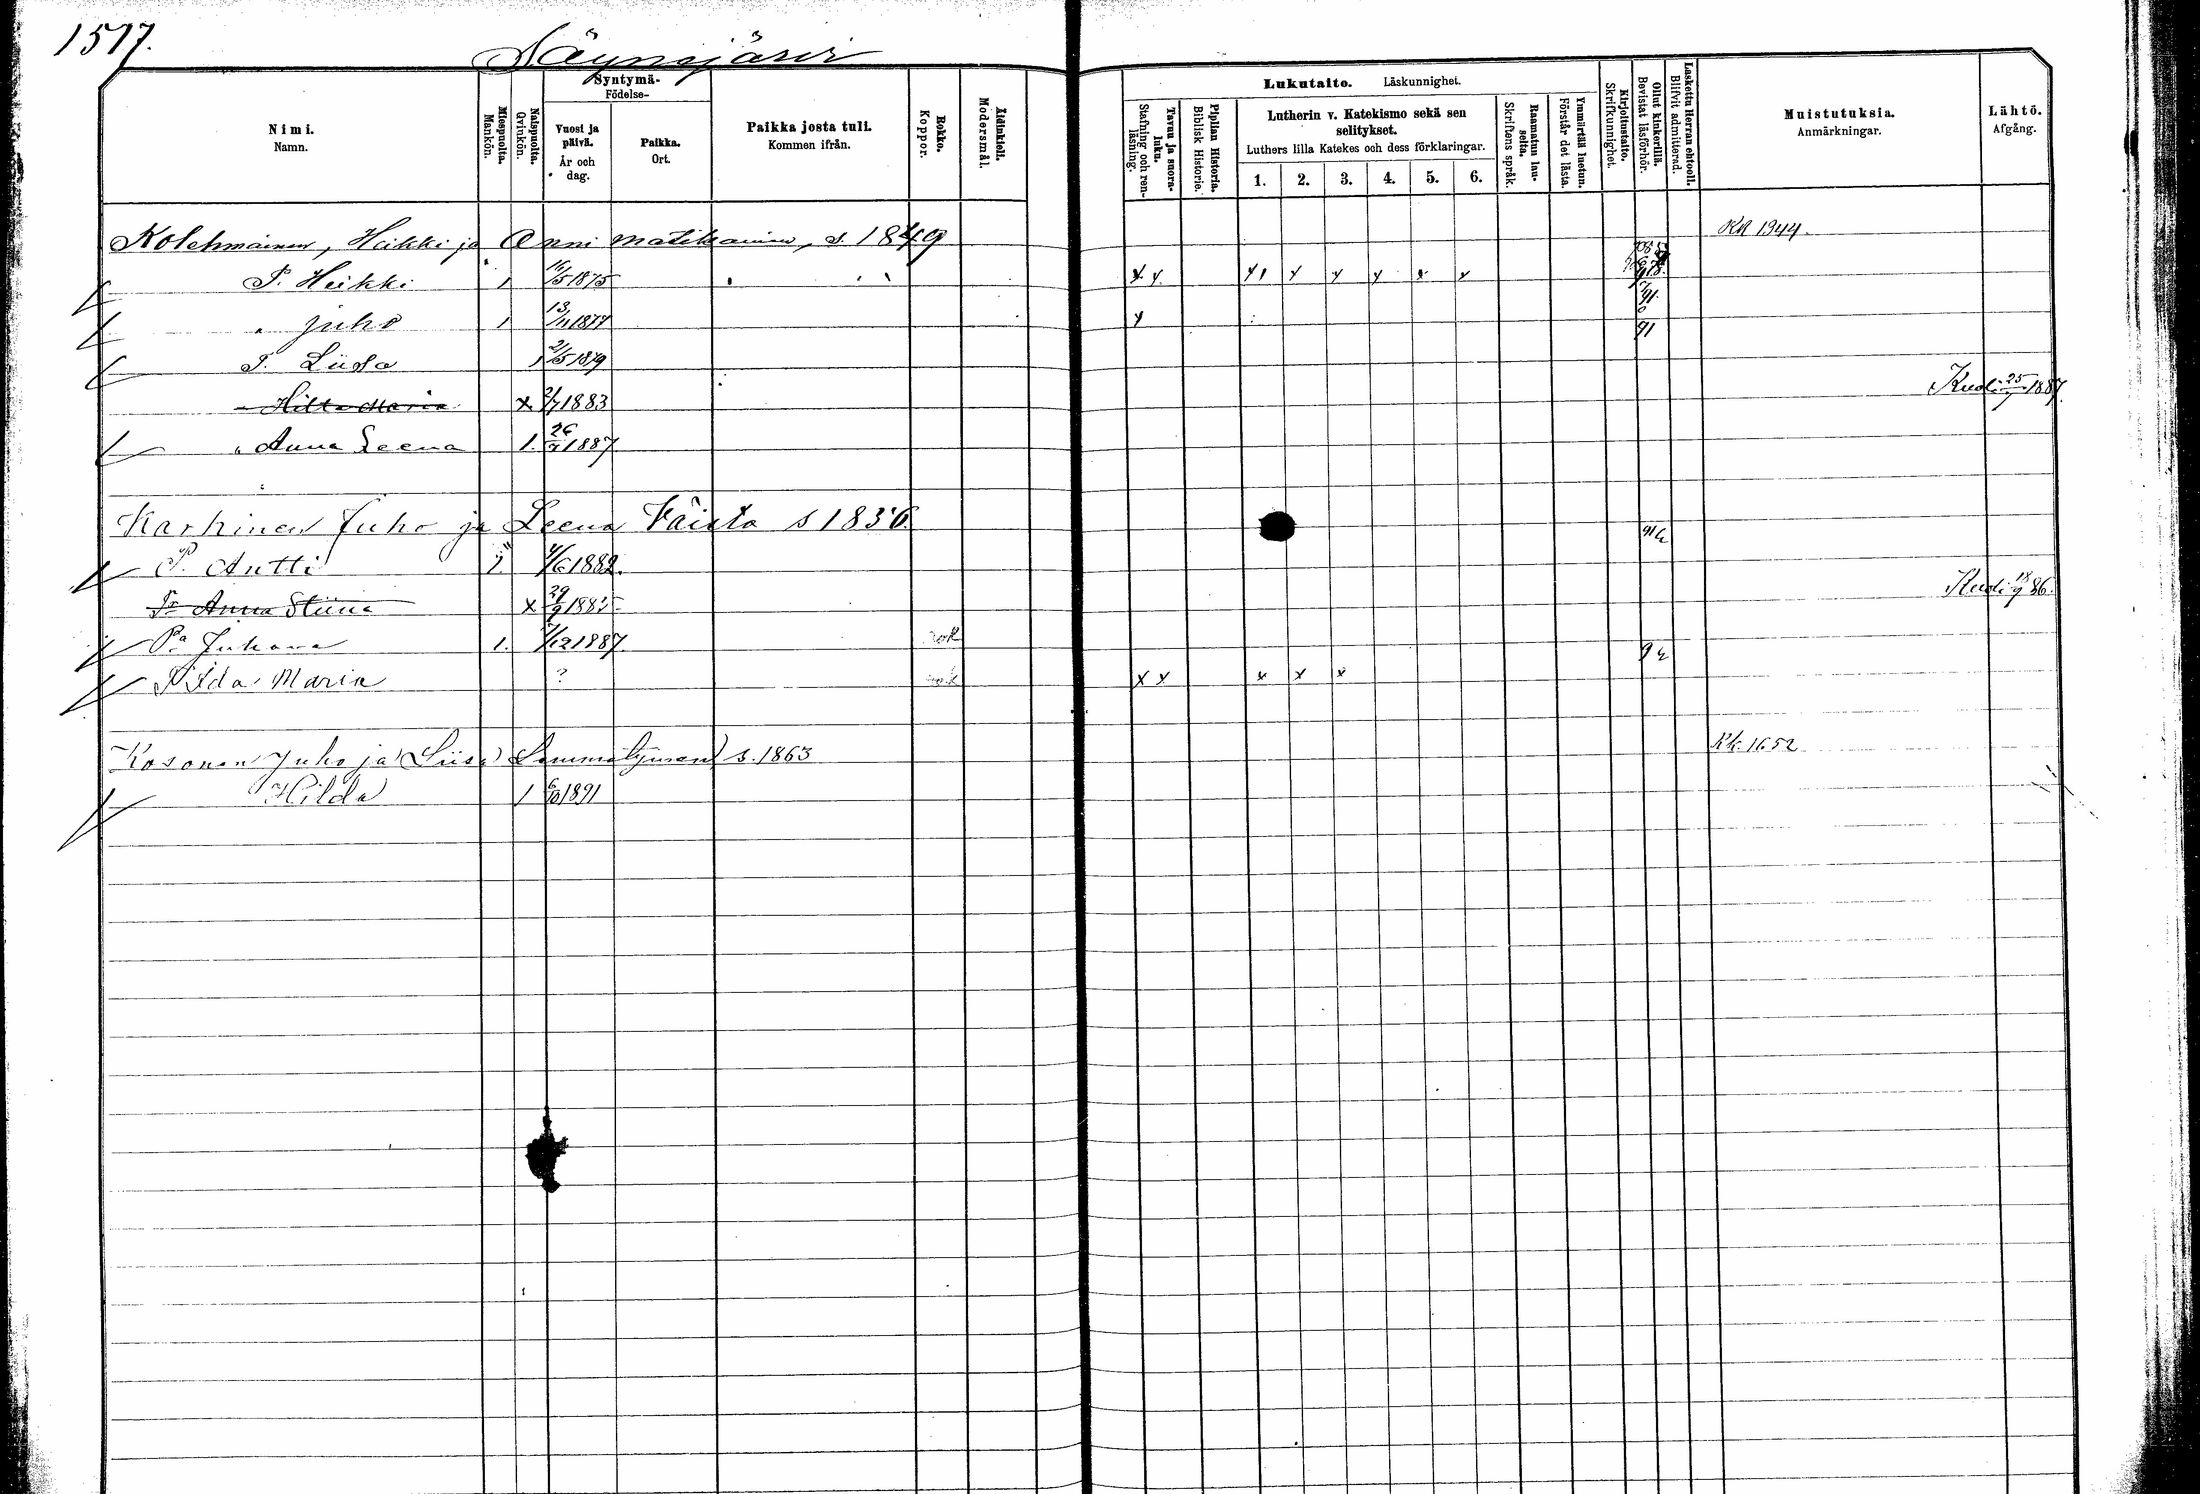 1517.
Säynejärvi
Nimi.
Namn.
Miespuolta.
Mankön.
Naispuolta.
Qvinkön.
Syntymä-
Födelse-
Vuosi ja päivä.
År och dag.
Paikka.
Ort.
Paikka josta tuli.
Kommen ifrån.
Rokko.
Koppor.
Äidinkieli.
Modersmål.
Lukutaito. Läskunnighet.
Tavuu ja suora-luku.
Stafning och ren-läsning.
Piplian Historia.
Biblisk Historie.
Lutherin v. Katekismo sekä sen
selitykset.
Luthers lilla Katekes och dess förklaringar.
1. 2. 3. 4. 5. 6.
Raamatun lau-seita.
Skriftens språk.
Ymmärtää luetun.
Förstår det lästa.
Kirjoitustaito.
Skrifkunnighet.
Ollut kinkerillä.
Bevistat läsförhör.
Laskettu Herran ehtooll.
Blifvit admitterad.
Muistutuksia.
Anmärkningar.
Lähtö.
Afgång.
Kolehmainen, Heikki ja Anni Matikainen, s. 1849 KK 1944.
P. Heikki 1 /5 1875 x x x 1 x x x x x
" Juho 1 13/11 1877 x 91
T. Liisa 1 21/5 1879 91
Hilta Maria x 2/7 1883 Kuoli 25/ 1887.
" Anna Leena 1. 26/ 1887
Karhinen Juho ja Leena Väistö s 1836.
P. Antti 1. 4/6 1882.
Tr Anna Stiina x 29/9 1885 Kuoli 18/9 86.
Pa Juhana 1. 7/12 1887 rok
T Ida Maria ? x x x x x
Kosonen Juho ja Liisa s. 1863 Kk. 1652
Hilda 1 6/10 1891